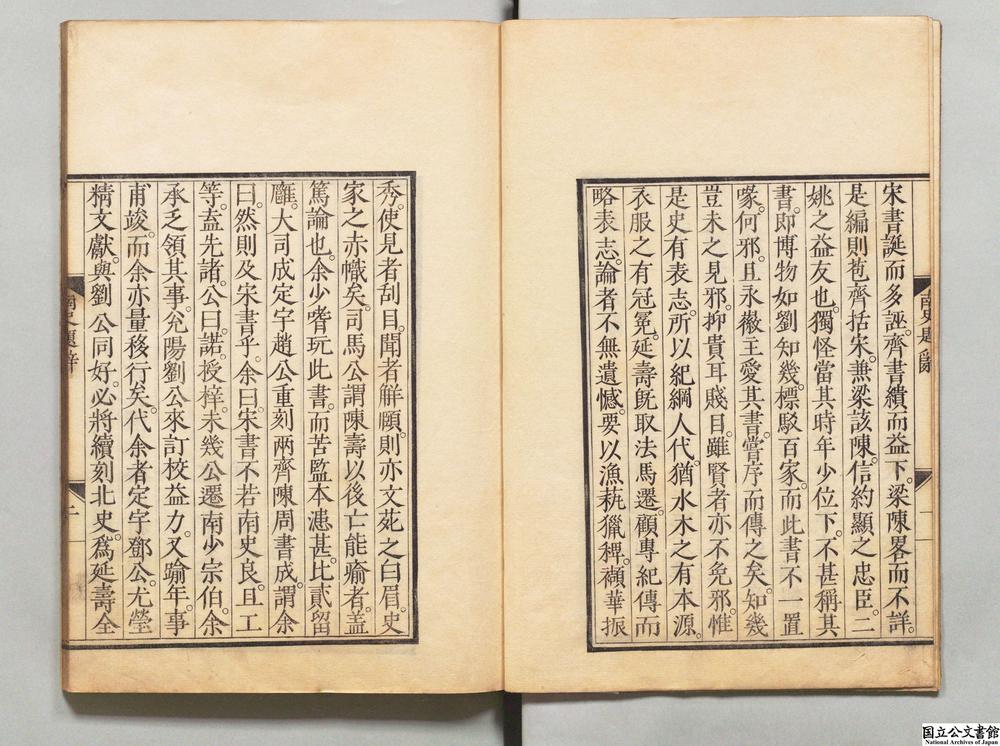 宋書誕而多誣。齊書繢而益下。梁陳畧而不詳。
是編則苞齊括宋。兼梁該陳。信約顯之忠臣。二
姚之益友也。獨怪當其時年少位下。不甚稱其
書。即博物如劉知幾。標駁百家。而此書不一置
喙。何邪。且永徽主愛其書。嘗序而傳之矣。知幾
豈未之見邪。抑貴耳賤目。雖賢者亦不免邪。惟
是史有表志。所以紀綱人代。猶水木之有本源。
衣服之有冠冕。延壽旣取法馬遷。顧專紀傳而
略表志。論者不無遺憾。要以漁蓺獵稗。襭華振
南史題辭
一
秀。使見者刮目。聞者觧頤。則亦文苑之白眉。史
家之赤幟矣。司馬公謂陳壽以後亡能踰者。盖
篤論也。余少嗜玩此書。而苦監本漶甚。比貳留
廱。大司成定宇趙公重刻兩齊陳周書成。謂余
曰。然則及宋書乎。余曰。宋書不若南史良。且工
等。盍先諸。公曰諾。授梓。未幾公遷南少宗伯。余
承乏領其事。兊陽劉公來訂校益力。又踰年。事
甫竣。而余亦量移行矣。代余者定宇鄧公。尤瑩
精文獻。與劉公同好。必將續刻北史。爲延壽全
南史題辭
二
国立公文書館
National Archives of Japan